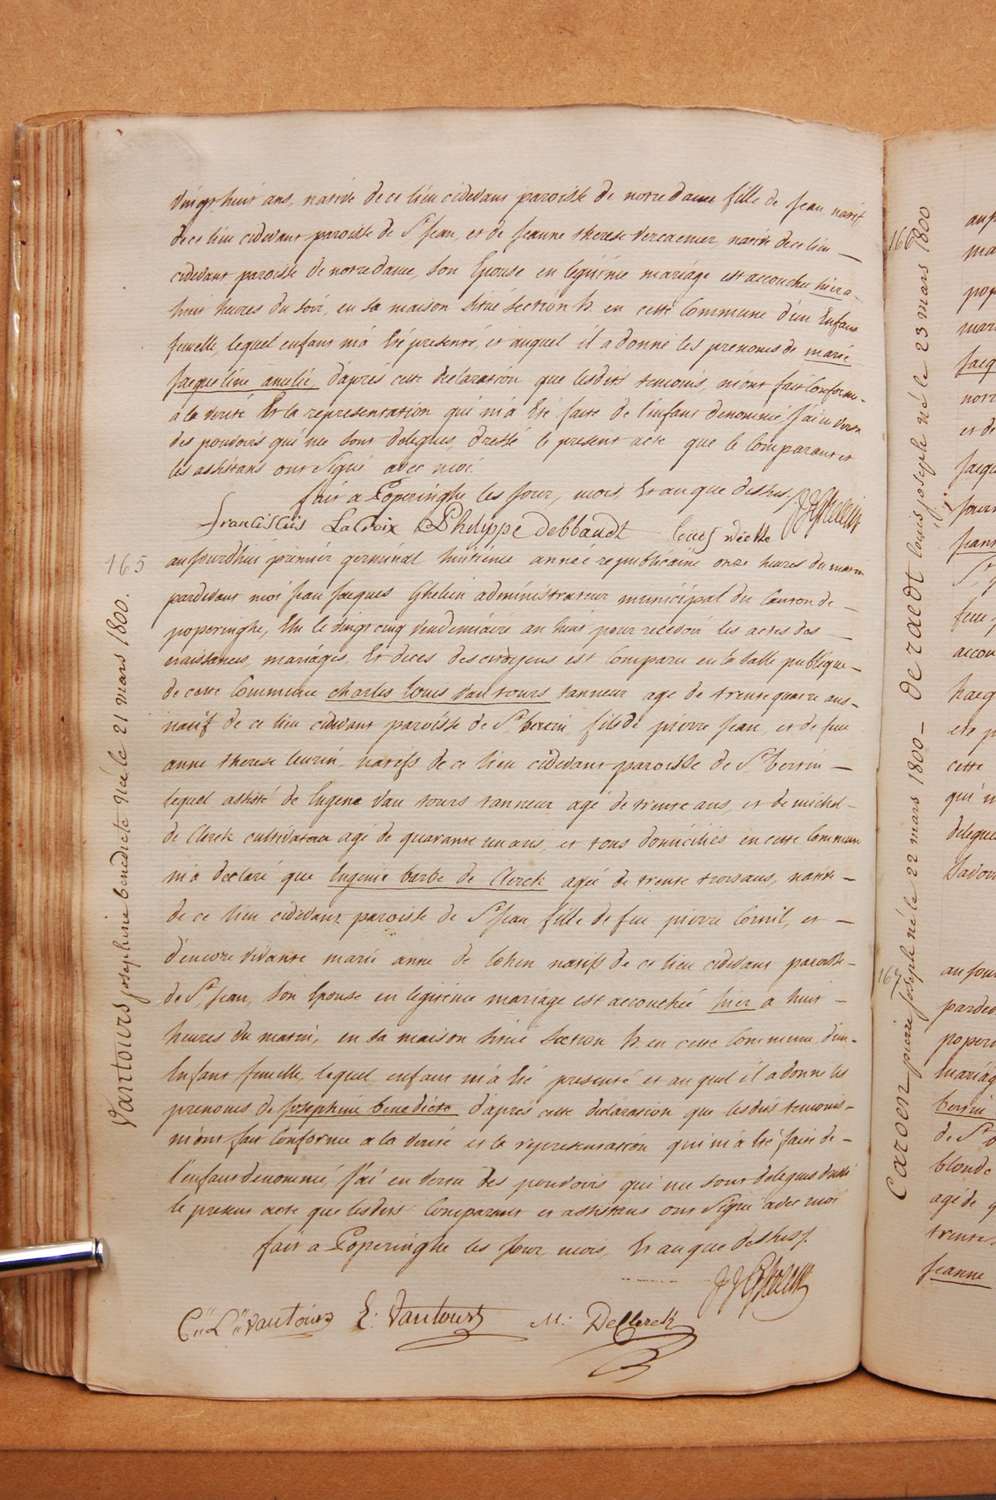 vingt huit ans, native de ce lieu cidevant paroisse de notre dame fille de jean natif
de ce lieu cidevant paroisse de St jean, et de jeanne therese vercaemer, native de ce lieu —
cidevant paroisse de notre dame, son Epouse en legitime mariage est accouchee hier a
huit heures du soir, en sa maison situé section b. en cette Commune d'un Enfant
femelle, lequel enfant m'a été presenté, et auquel il a donné les prenoms de marie
jacqueline amelie, d'apres cette declaration que lesdits temoins, m'ont fait conforme
a la verité Et la representation qui m'a Eté faite de l'enfant denommé, j'ai en vertu
des pouvoirs qui me sont delegués, dressé le present acte que le Comparant et
les assistans ont Signé avec moi.
fait a Poperinghe les jour, mois, Et an que dessus
Franciscus LaCroix Philippe Debbaudt
165
aujourdhui premier germinal huitieme année republicaine onze heures du matin
pardevant moi jean jacques Ghelein administrateur municipal du Canton de —
poperinghe, Elu le vingt cinq vendemiaire an huit pour recevoir les actes des —
naissances, mariages, Et deces des citoyens est Comparu en la salle publique —
de cette Commune charles louis van tours tanneur agé de trente quatre ans —
natif de ce lieu cidevant paroisse de St bertin, fils de pierre jean, et de feue
anne therese leurin, natifs de ce lieu cidevant paroisse de St bertin —
lequel assisté de Eugene van tours tanneur agé de trente ans, et de michel —
de Clerck cultivateur agé de quarante un ans, et tous domiciliés en cette Commune
m'a declaré que Eugenie barbe de Clerck agée de trente trois ans, native —
de ce lieu cidevant paroisse de St jean fille de feu pierre Cornil, et —
d'encore vivante marie anne de Cohen natifs de ce lieu cidevant paroisse —
de St jean, son Epouse en legitime mariage est accouchée hier a huit —
heures du matin, en sa maison situé Section b. en cette Commune, d'un —
Enfant femelle, lequel enfant m'a Eté presenté et auquel il a donné les
prenoms de josephine benedicte d'apres cette declaration que lesdits temoins —
m'ont fait Conforme a la verité et la representation qui m'a Eté faite de —
l'enfant denommé, j'ai en vertu des pouvoirs qui me sont delegues dressé
le present acte que lesdits Comparant et assistans ont Signé avec moi
fait a Poperinghe les jour, mois, Et an que dessus.
C: L: Vantours E: Vantours M: DeClerck
Vantours josephine benedicte née le 21 mars 1800.
166
de raedt louis joseph né le 23 mars 1800
167
Caroen pierre joseph né le 22 mars 1800 —